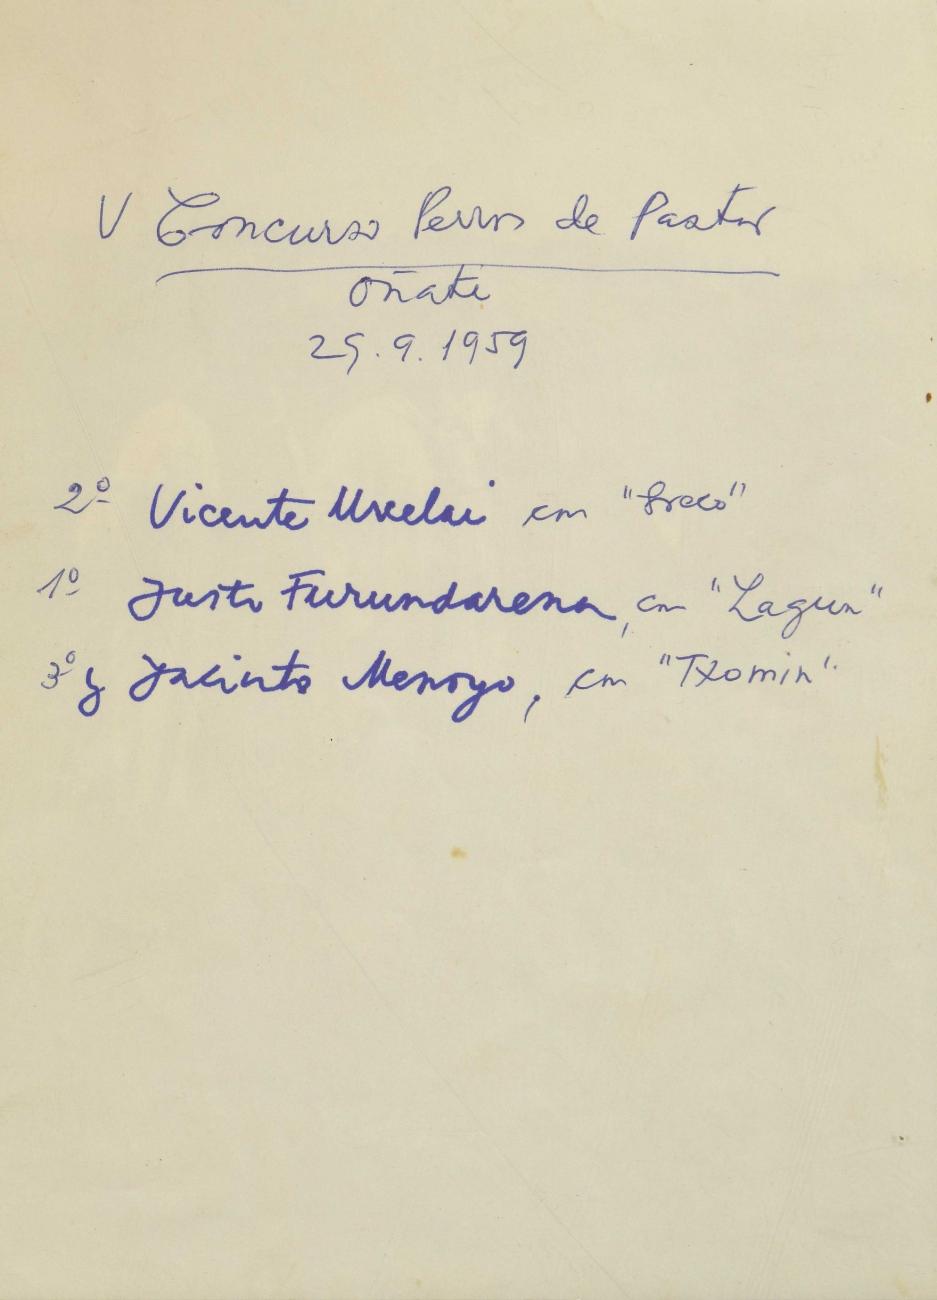 V Concurso Perros de Pastor
Oñate
29.9.1959
2º Vicente Urcelai con
1º Justo Furundarena, con "Lagun"
3º y Jacinto Menoyo, con "Txomin".